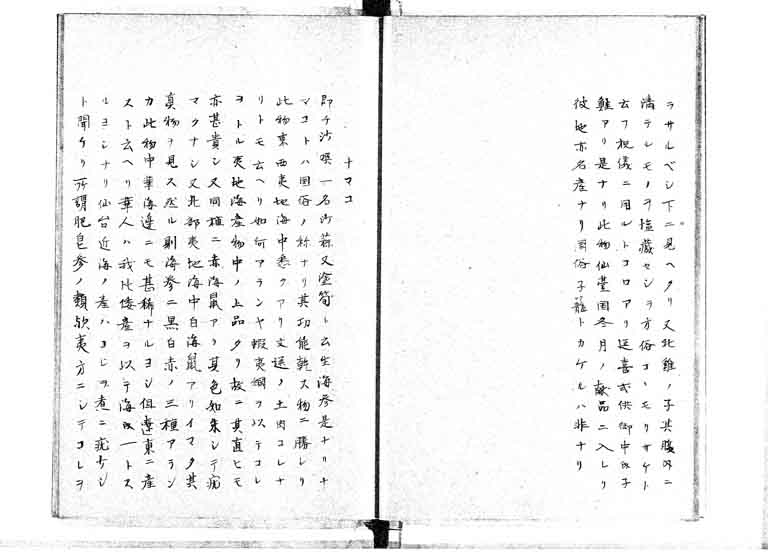 ラサルベシ下ニ見ヘタリ又北鮭ノ子其腹内ニ
満テルモノヲ塩蔵セシヲ方俗コヽモリサケト
云フ祝儀ニ用ルトコロアリ延喜式供御中内子
鮭アリ是ナリ此物仙臺国冬月ノ献品ニ入レリ
彼地亦名産ナリ国俗子籠トカケルハ非ナリ
ナマコ
即チ沙噀一名沙蒜又塗筍ト云生海参是ナリナ
マコトハ国俗ノ称ナリ其功能乾入物ニ勝レリ
此物東西夷地海中悉クアリ文選ノ土肉コレナ
リトモ云ヘリ如何アランヤ蝦夷網ヲ以テコレ
ヲトル夷地海産物中ノ上品タリ故ニ其直ヒモ
亦甚貴シ又同種ニ赤海鼠アリ其色如朱シテ
マクナシ又北部夷地海中白海鼠アリイマタ其
真物ヲ見ス然ル則海参ニ黒白赤ノ三種アラン
カ此物中華海辺ニモ甚稀ナルヨシ但遼東ニ産
スト云ヘリ華人ハ我比倭産ヲ以テ海内一トス
ルヨシナリ仙台近海ノ産ハコレヲ煮ニ疏ケシ
ト聞ケリ所謂肥皂参ノ類欤夷方ニシテコレヲ